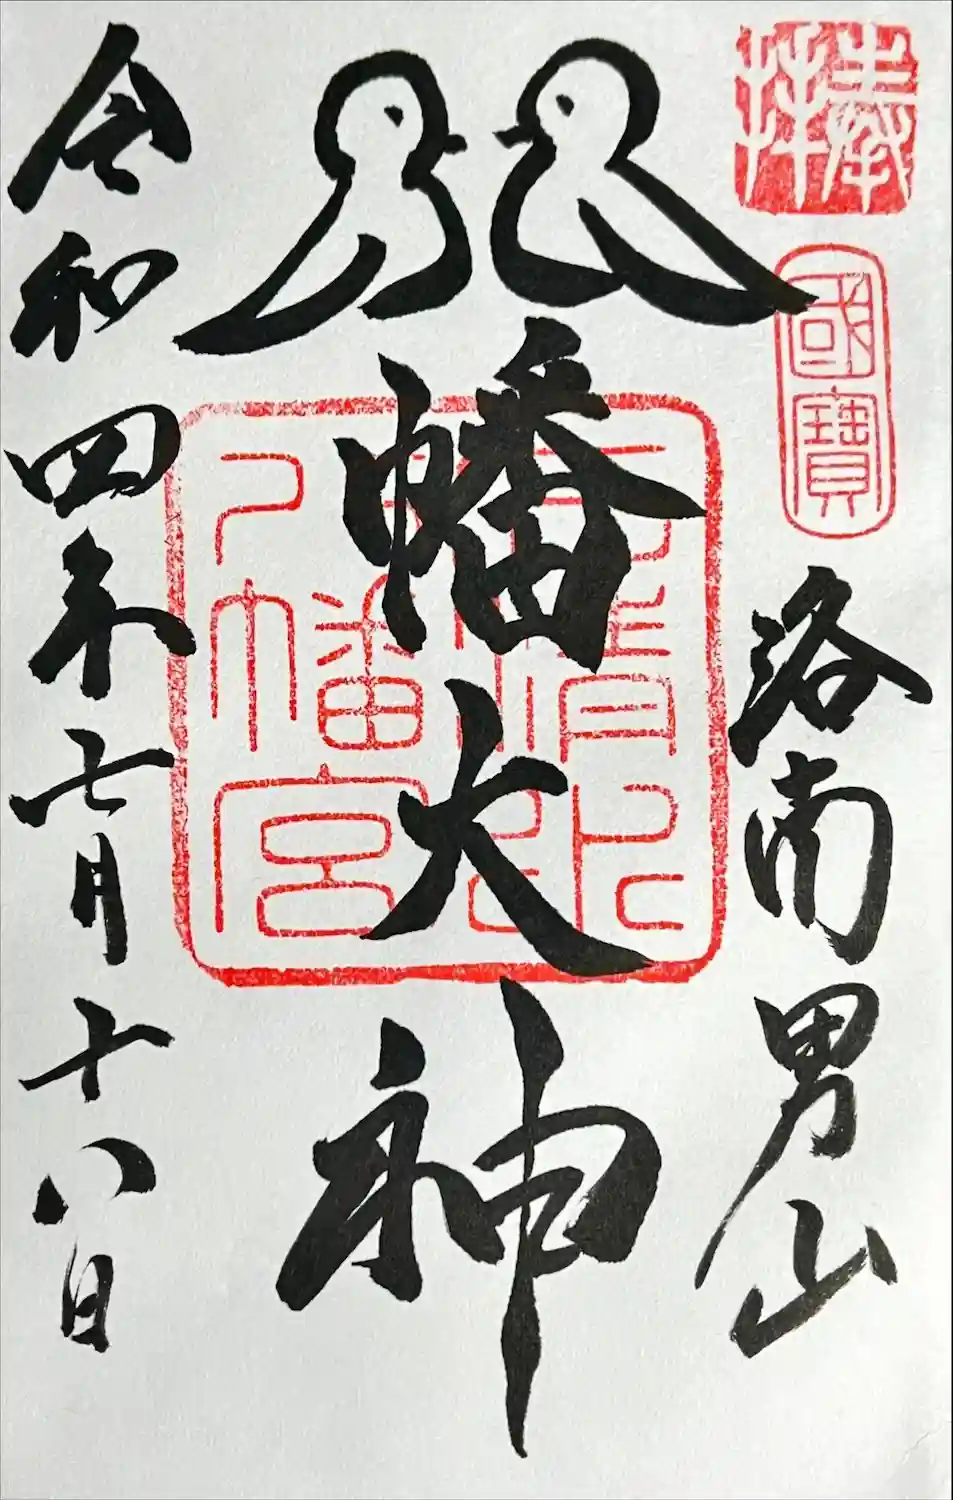 奉拝
國寶
洛南男山
八幡大神
石清水
八幡宮
令和四年七月十八日